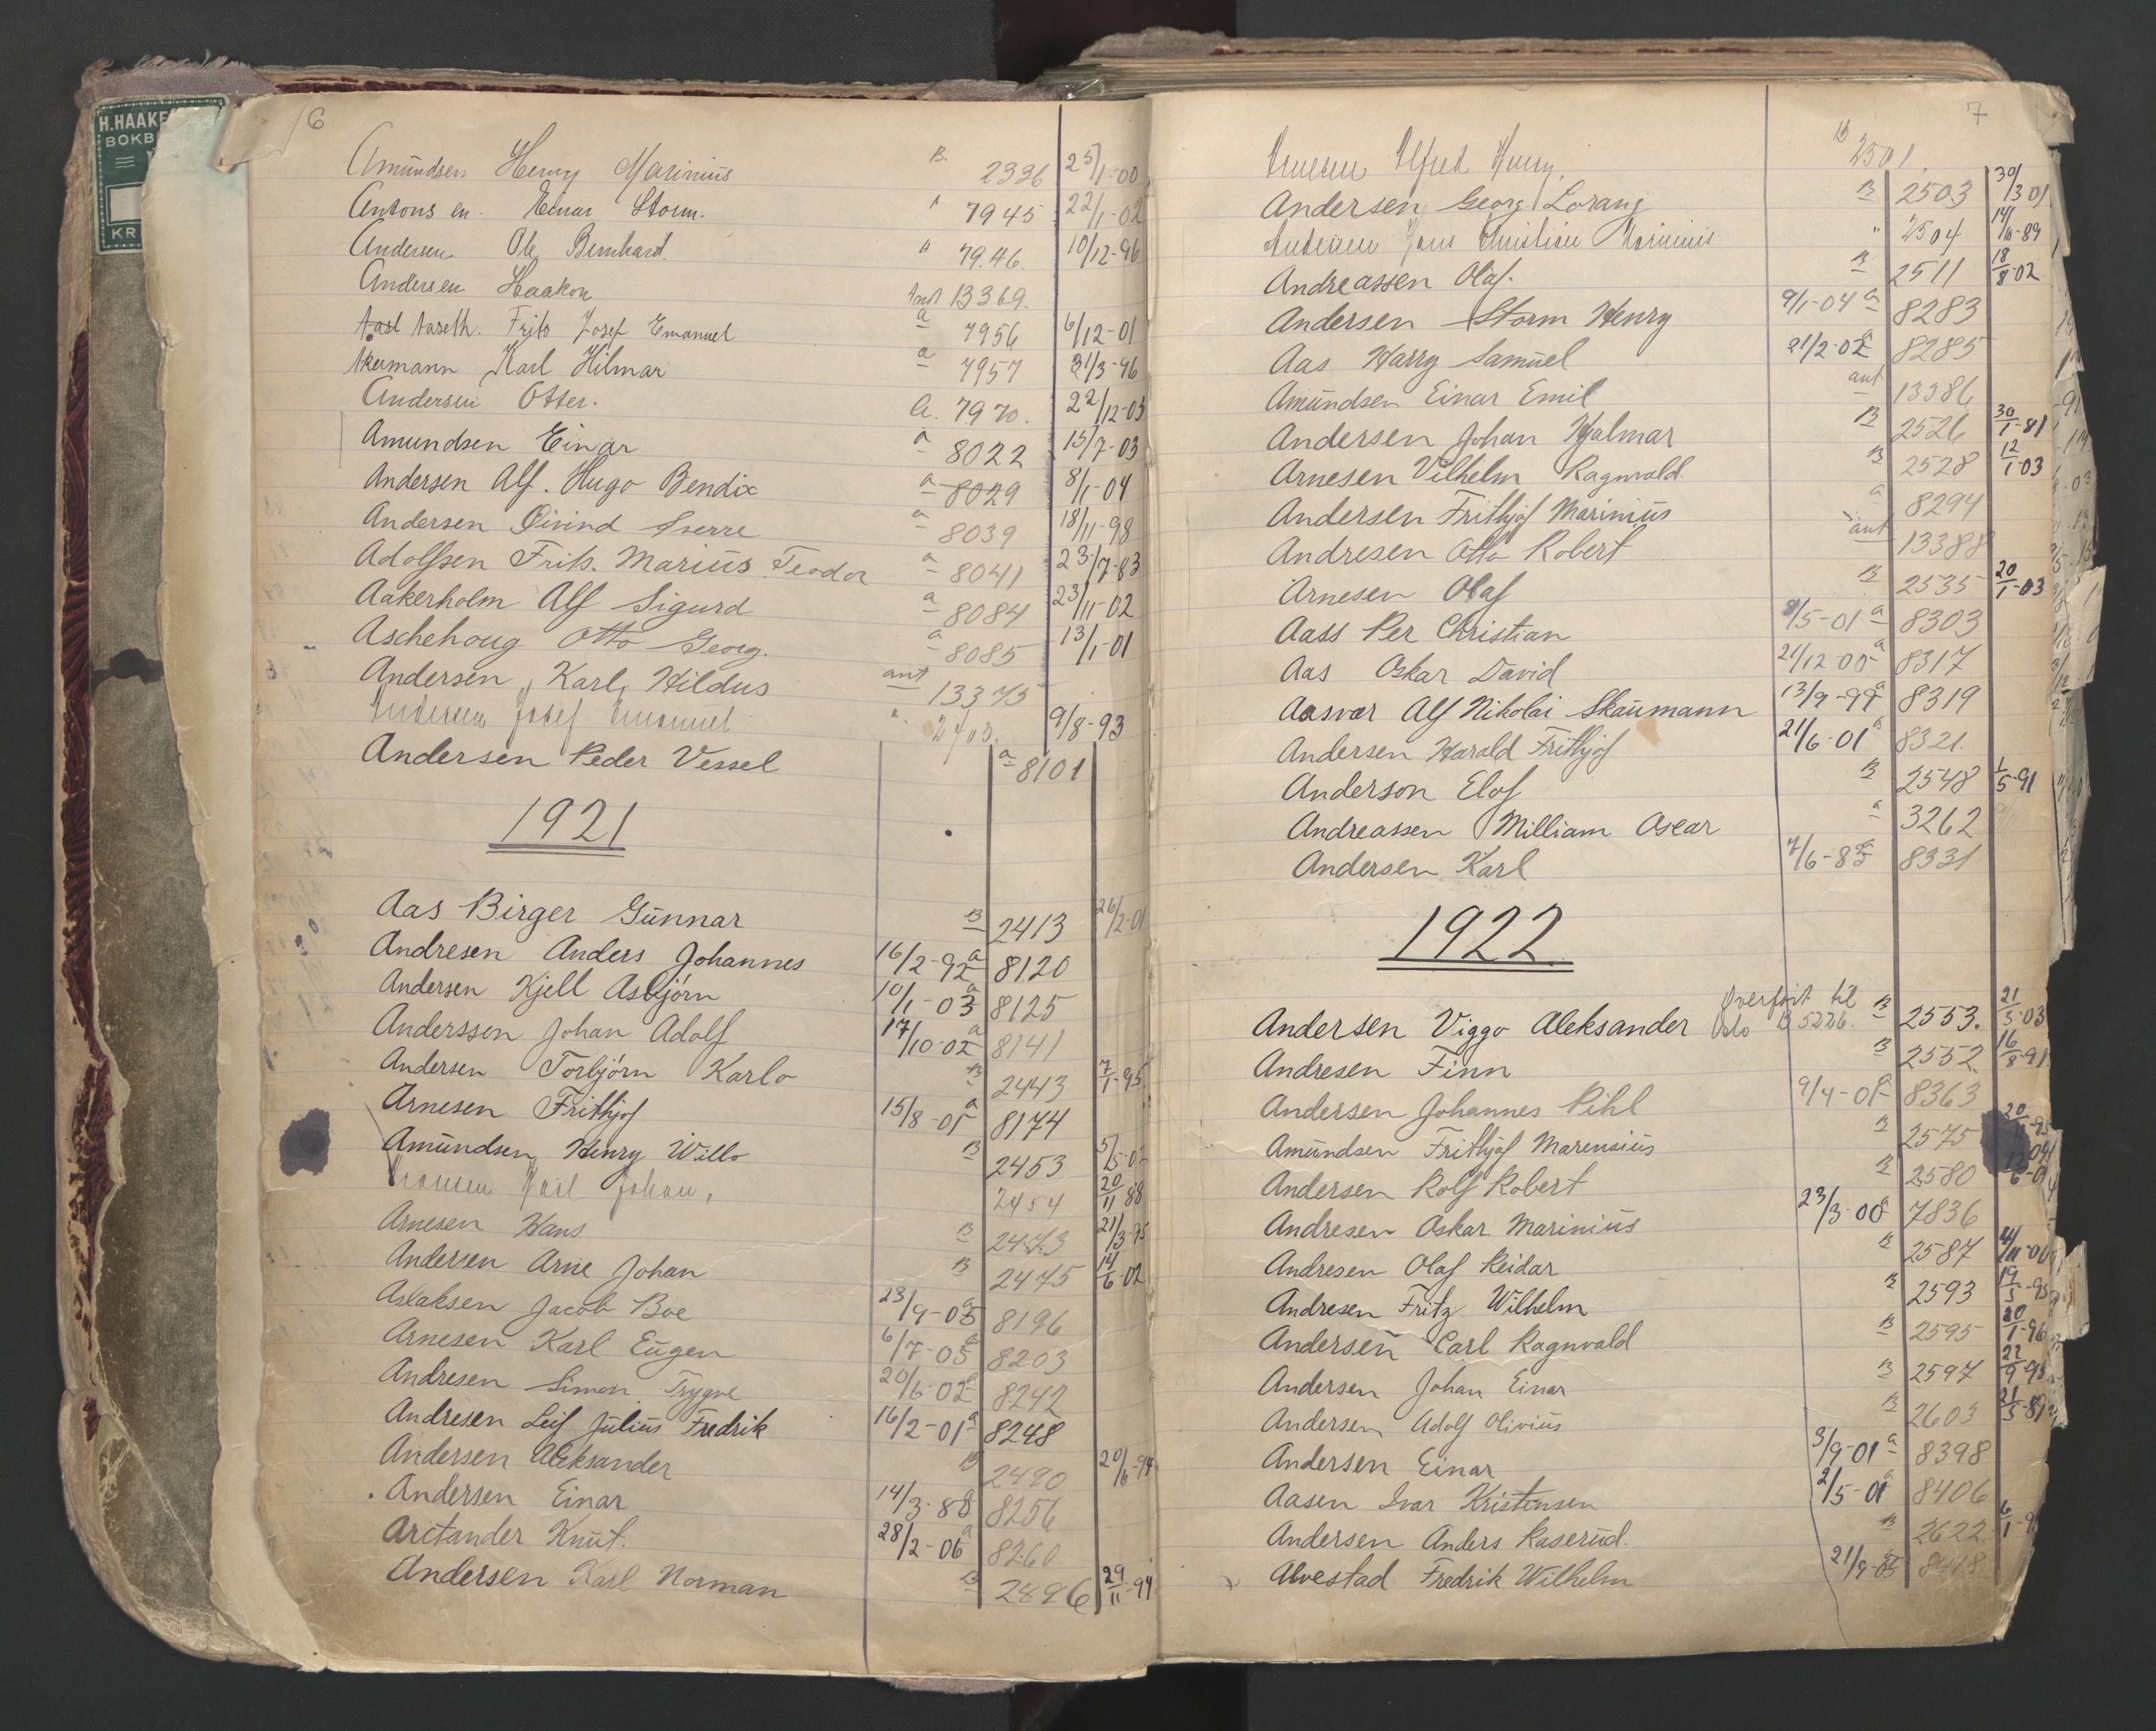 H.HAAKE
BOKB
KR
6
Amundsen Henry Marinius B. 2336 25/1-00
Antonsen Einar Storm. " 7945 22/1-02
Andersen Ole Bernhard. " 7946. 10/12-96
Andersen Haakon Ant 13369.
Frits Josef Emanuel a 7956 6/12-01
Akermann Karl Hilmar a 7957 21/3-96
Andersen Otter. a. 7970. 22/12-03
Amundsen Einar a 8022 15/7-03
Andersen Alf. Hugo Bendix a 8029 8/1-04
Andersen Øivind Sverre a 8039 18/11-98
Adolfsen Frits. Marius Teodor a 8041 23/7-83
Aakerholm Alf Sigurd a 8084 23/11-02
Aschehoug Otto Georg. a 8085 13/1-01
Andersen Karl Hildus ant 13375
Andersen Josef Emanuel 2403. 9/8-93
Andersen Peder Vessel a 8101
1921
Aas Birger Gunnar B 2413 26/2-01
Andresen Anders Johannes 16/2-92 a 8120
Andersen Kjell Asbjørn 10/1-03 a 8125
Andersson Johan Adolf 17/10-02 a 8141
Andersen Torbjørn Karlo B 2443 7/1-95
Arnesen Frithjof 15/8-01 a 8174
Amundsen Henry Willo B 2453 5/5-02
Karl Johan, 2454 20/11 88
Arnesen Hans B 2473 21/3-95
Andersen Arne Johan B 2475 14/6-02
Aslaksen Jacob Boe 23/9-05 a 8196
Arnesen Karl Eugen 6/7-05 a 8203
Andresen Simon Trygve 20/6-02 a 8242
Andresen Leif Julius Fredrik 16/2-01 a 8248
Andersen Aleksander B 2490 20/6-94
Andersen Einar 14/3-88 a 8256
Arctander Knut. 28/2-06 a 8260
Andersen Karl Norman B 2496 29/11-94
7
Alfred Harry, B 2501.
Andersen Georg Lorang B 2503 30/3 01
Andersen Hans Christian Marinius " 2504 14/6-89
Andreassen Olaf. B 2511 18/8-02
Andersen Storm Henry 9/1-04 a 8283
Aas Harry Samuel 21/2-02 a 8285
Amundsen Einar Emil ant 13386
Andersen Johan Hjalmar B 2526 30/1-81
Arnesen Vilhelm Ragnvald. B 2528 12/1-03
Andersen Frithjof Marinius a 8294
Andresen Otto Robert ant 13388
Arnesen Olaf B 2535 20/1-03
Aass Per Christian 8/5-01 a 8303
Aas Oskar David 21/12-00 a 8317
Aasvær Alf Nikolai Skaumann 13/9-99 a 8319
Andersen Harald Frithjof 21/6-01 a 8321.
Anderson Elof B 2548 1/5-91
Andreassen William Oscar a 3262
Andersen Karl 7/6-85 a 8331
1922
Overført til
Andersen Viggo Aleksander Oslo B 5226. B 2553. 21/3-03
Andresen Finn B 2552. 16/8-91
Andersen Johannes Pihl 9/4-01 a 8363
Amundsen Frithjof Marensius B 2575 20
Andersen Rolf Robert B 2580
Andresen Oskar Marinius 23/3-00 a 7836
Andresen Olaf Reidar B 2587
Andresen Fritz Wilhelm B 2593 19/5-93
Andersen Carl Ragnvald B 2595 20/1-96
Andersen Johan Einar B 2597 22/9-98
Andersen Adolf Olivius B 2603 21/5-89
Andersen Einar 3/9-01 a 8398
Aasen Ivar Kristensen 2/5-01 a 8406
Andersen Anders Kaserud. B 2622
Alvestad Fredrik Wilhelm 21/9-05 a 8418